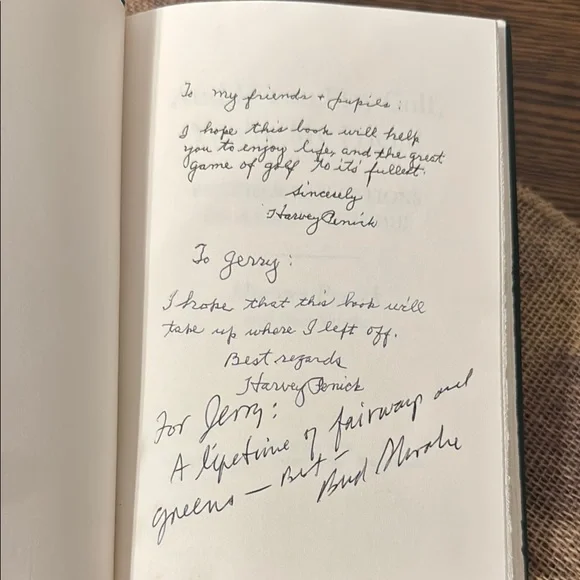 To my friends + pupils:
I hope this book will help
you to enjoy life, and the great
game of golf to it's fullest.
Sincerely
Harvey Penick
To Jerry:
I hope that this book will
take up where I left off.
Best regards
Harvey Penick
For Jerry:
A lifetime of fairways and
greens — Best —
Bud Shrake